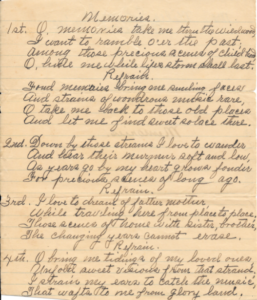 Memories.
1st. O, memories take me thru the
I want to ramble over the past,
Among those precious scenes of child
O, hide me while life's storm shall last.
Refrain.
Fond memories bring me smiling faces
And strains of wondrous music rare,
O take me back to those old places
And let me find sweet solace there.
2nd. Down by those streams I love to wander
And hear their murmur soft and low,
As years go by my heart grows fonder
For precious scenes of long ago.
Refrain.
3rd. I love to dream of father mother
While traveling here from place to place,
Those scenes of home with sister, brother,
The changing years cannot erase.
Refrain.
4th. O bring me tidings of my loved ones
sweet visions from that strand,
I strain my ears to catch the music,
That wafts to me from glory land.